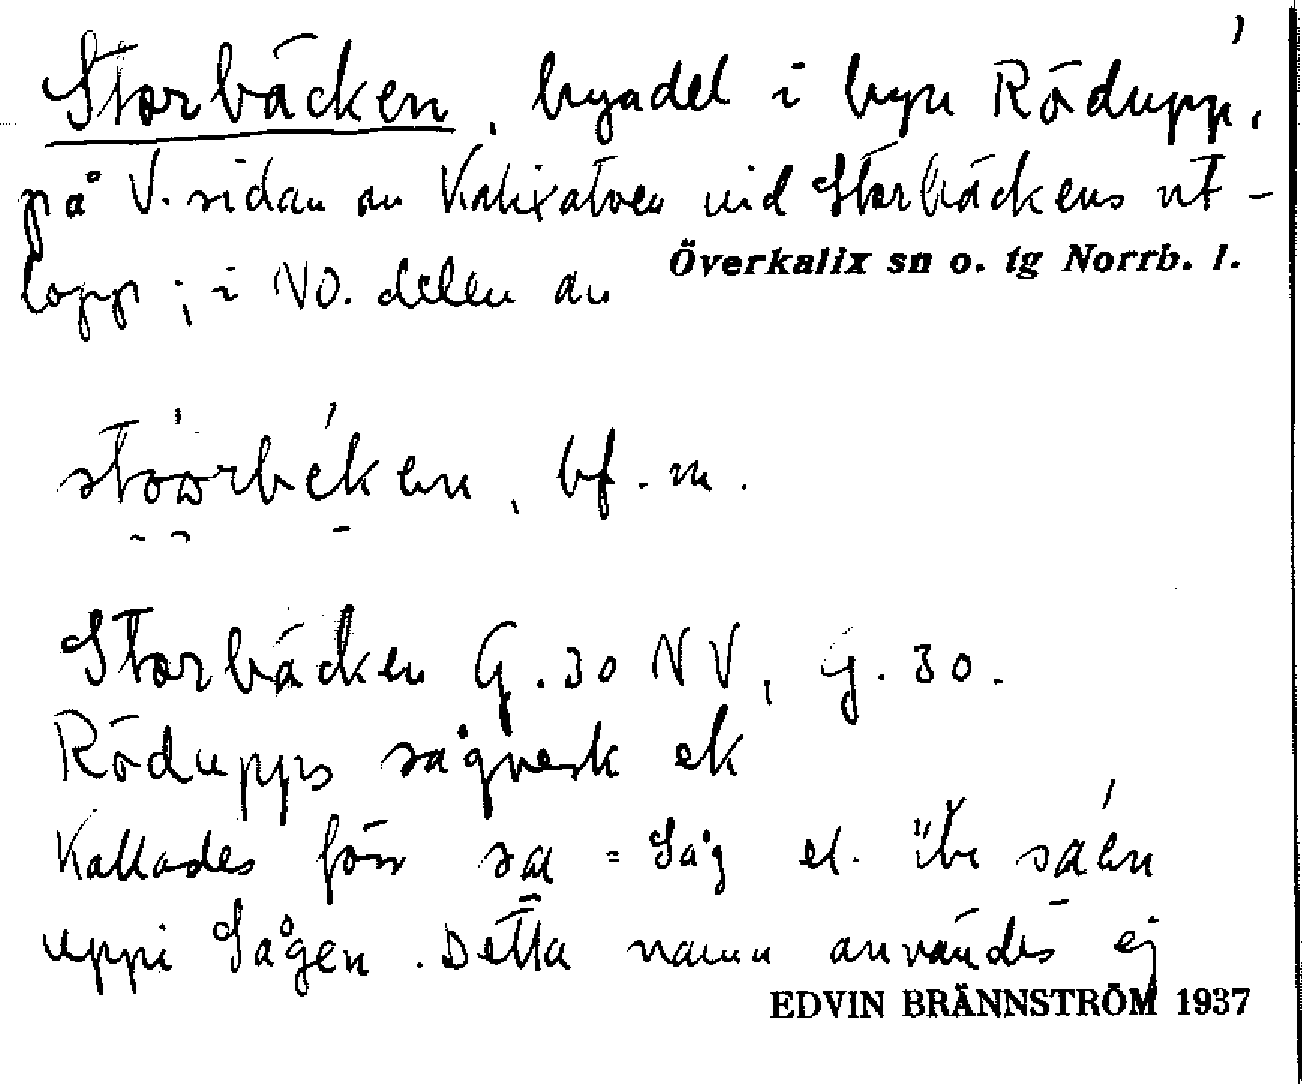 Storbäcken, byadel i byn Rödupp,
på V. sidan av Kalixälven vid Storbäckens ut-
lopp ; i NO. delen av
Överkalix sn o. tg Norrb. l.
bf. m.
Storbäcken G. 30 NV, G. 30.
Rödupps sågverk ek
Kallades förr sa = Såg el. säen
uppi Sågen. Detta namn användes ej
EDVIN BRÄNNSTRÖM 1937